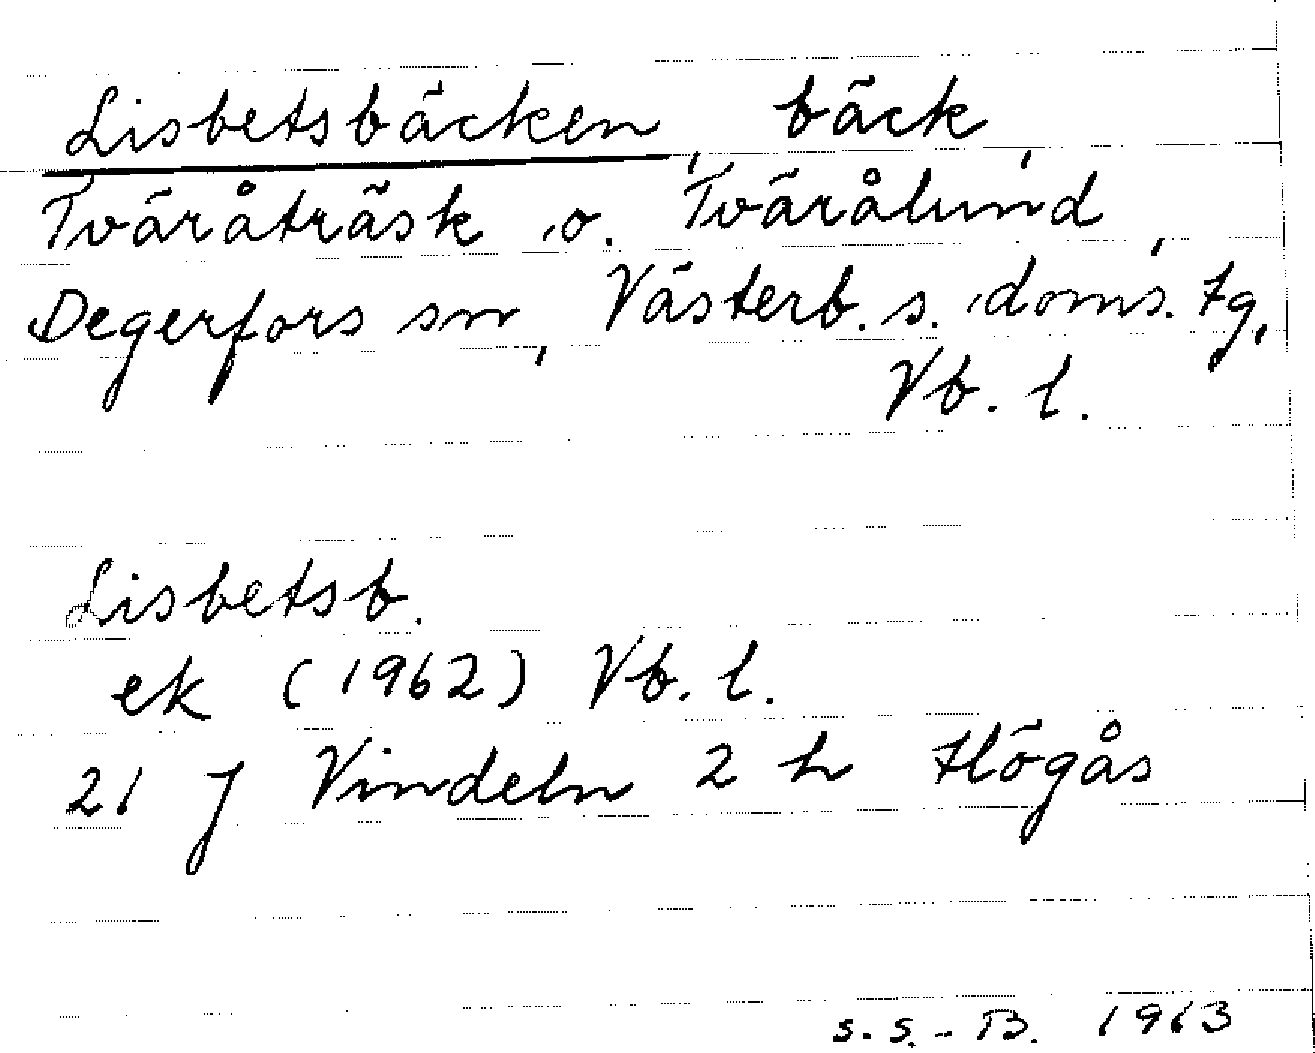 Lisbetsbäcken, bäck,
Tväråträsk o. Tvärålund,
Degerfors sn, Västerb. s. doms. tg,
Vb. l.
Lisbetsb.
ek (1962) Vb. l.
21 J Vindeln 2 h Högås
S.S.-B. 1963